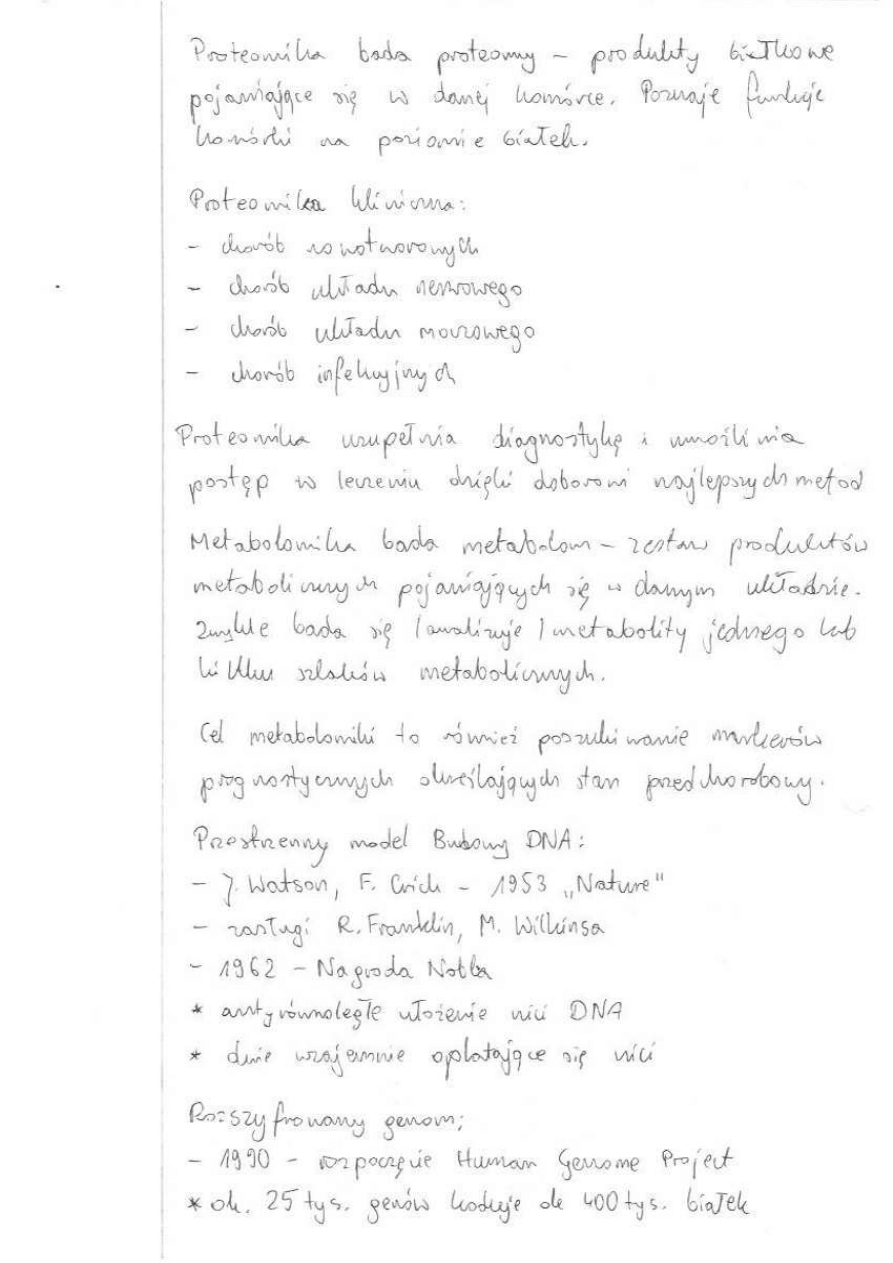 Proteomika bada proteomy - produkty białkowe
pojawiające się w danej komórce. Poznaje funkcje
komórki na poziomie białek.
Proteomika kliniczna:
- chorób nowotworowych
- chorób układu nerwowego
- chorób układu moczowego
- chorób infekcyjnych
Proteomika uzupełnia diagnostykę i umożliwia
postęp w leczeniu dzięki doborowi najlepszych metod
Metabolomika bada metabolom - zestaw produktów
metabolicznych pojawiających się w danym układzie.
Zwykle bada się /analizuje/ metabolity jednego lub
kilku szlaków metabolicznych.
Cel metabolomiki to również poszukiwanie markerów
prognostycznych określających stan przedchorobowy.
Przestrzenny model Budowy DNA:
- J. Watson, F. Crick - 1953 „Nature"
- zasługi R. Franklin, M. Wilkinsa
- 1962 - Nagroda Nobla
* antyrównoległe ułożenie nici DNA
* dwie wzajemnie oplatające się nici
Rozszyfrowany genom;
- 1990 - rozpoczęcie Human Genome Project
* ok. 25 tys. genów koduje ok 400 tys. białek